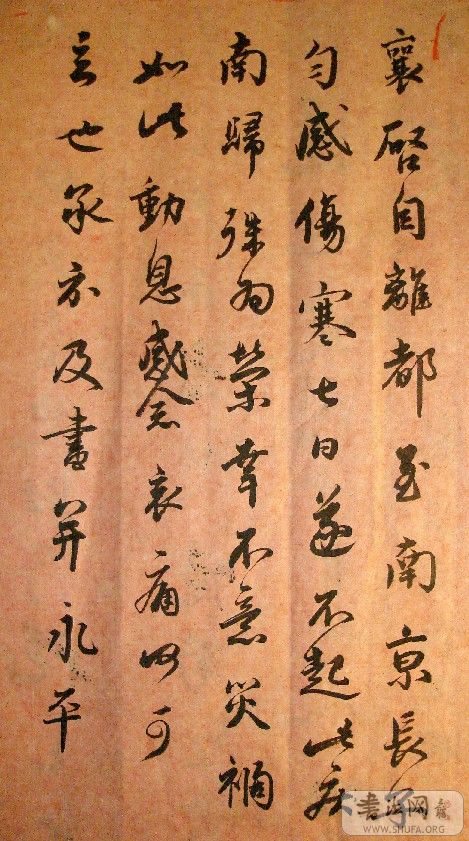 襄啓自離都至南京長子
勻感傷寒七日遂不起此疾
南歸殊為榮幸不意災禍
如此動息感念哀痛何可
言也承示及書并永平
书法网
WWW.SHUFA.ORG